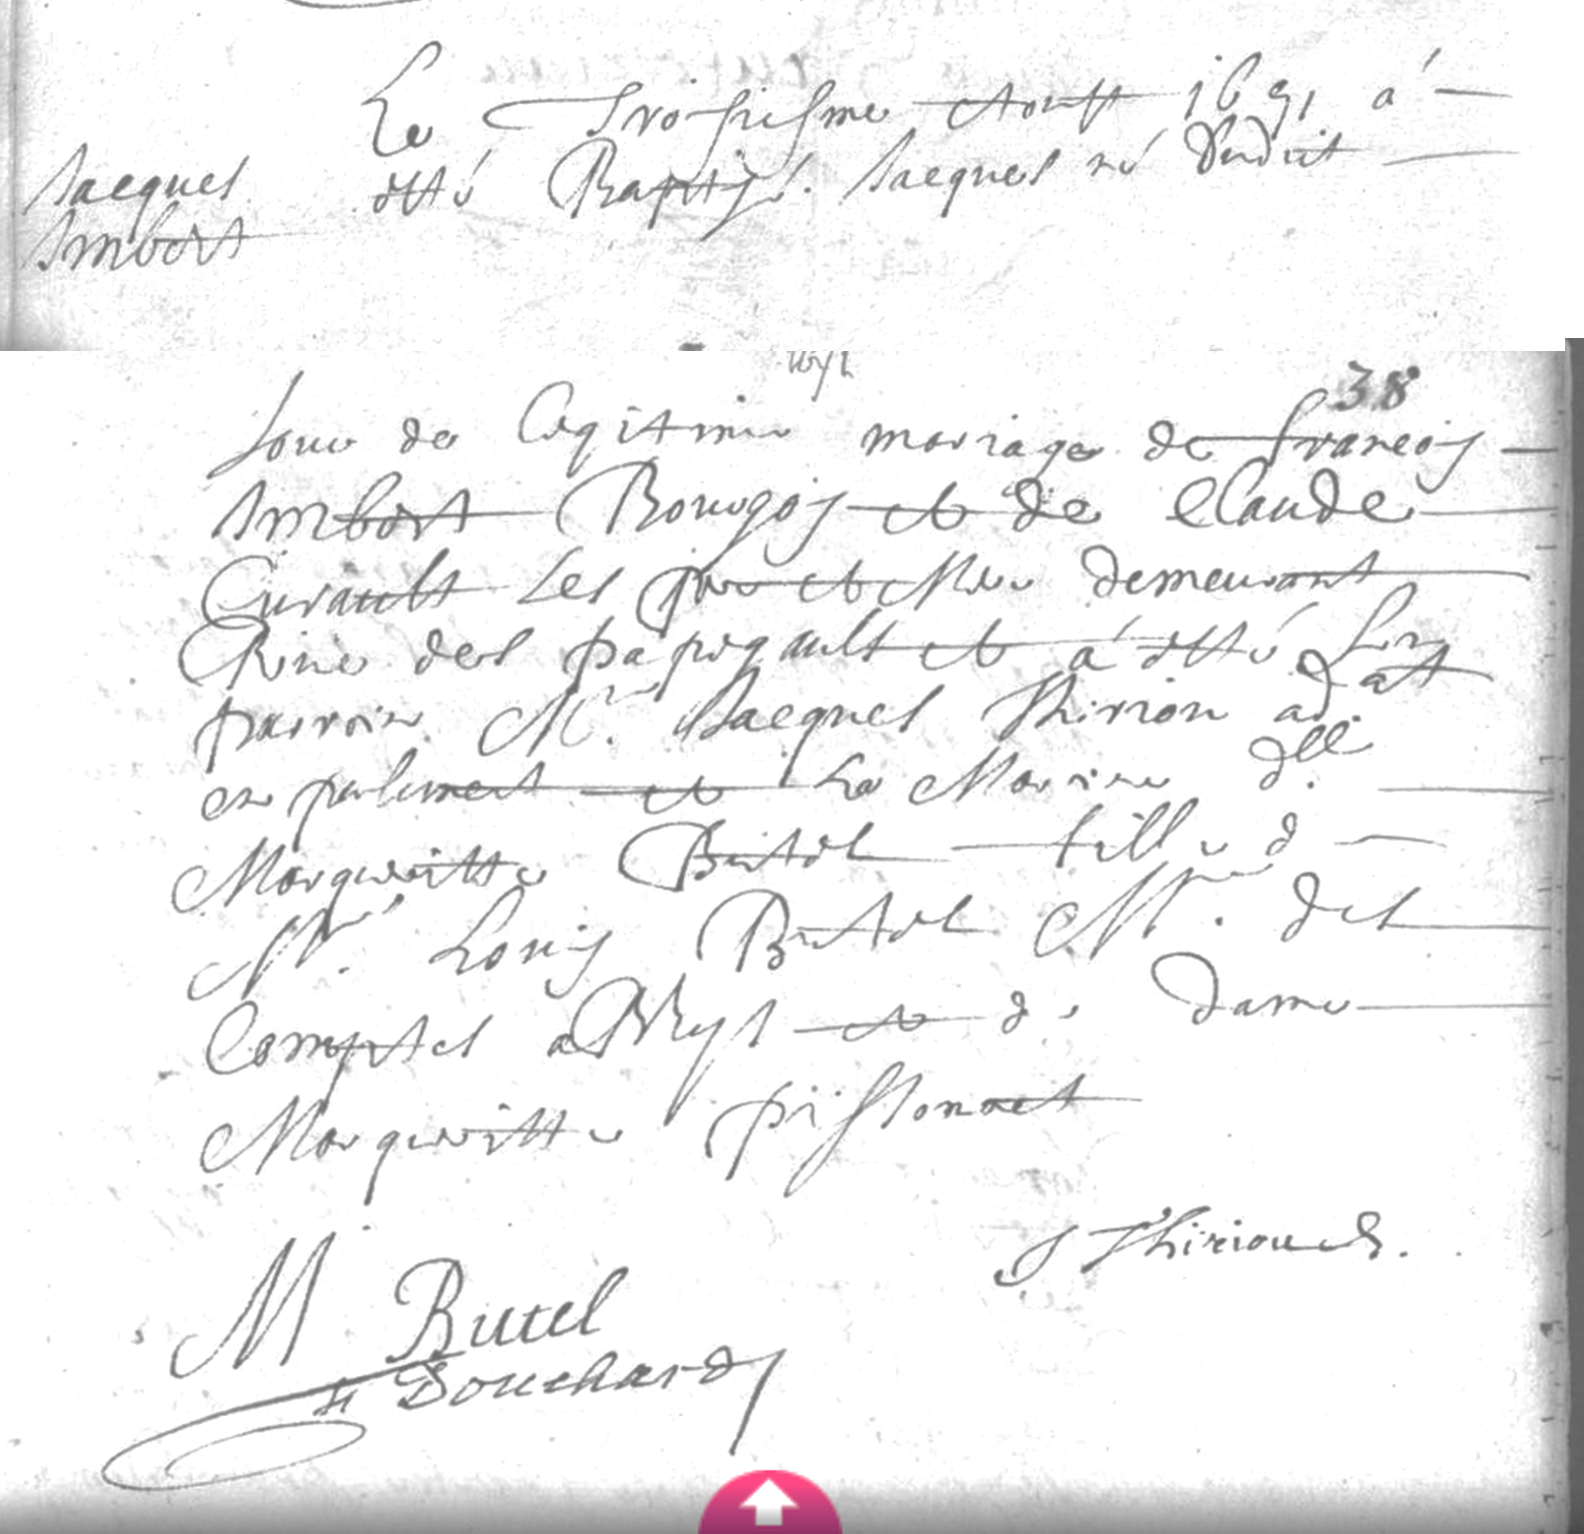 Le Troisiesme Aoust 1691 a
Jacques
Imbert
esté Baptisé Jacques né dudit
38
Jour de Legitime mariage de françois
Imbert Bourgois et de Claude
Curault Les pere et Mere demeurant
Rüe des papegault et á esté son
parroin Mr. Jacques Thirion adat
en parlement et La Marine dlle.
Margueritte Butel fille d
Mr. Louis Butel Mre. des
Comptes a Bloys et de dame
Margueritte prissonnet
J Thirion
M Butel
Douchard